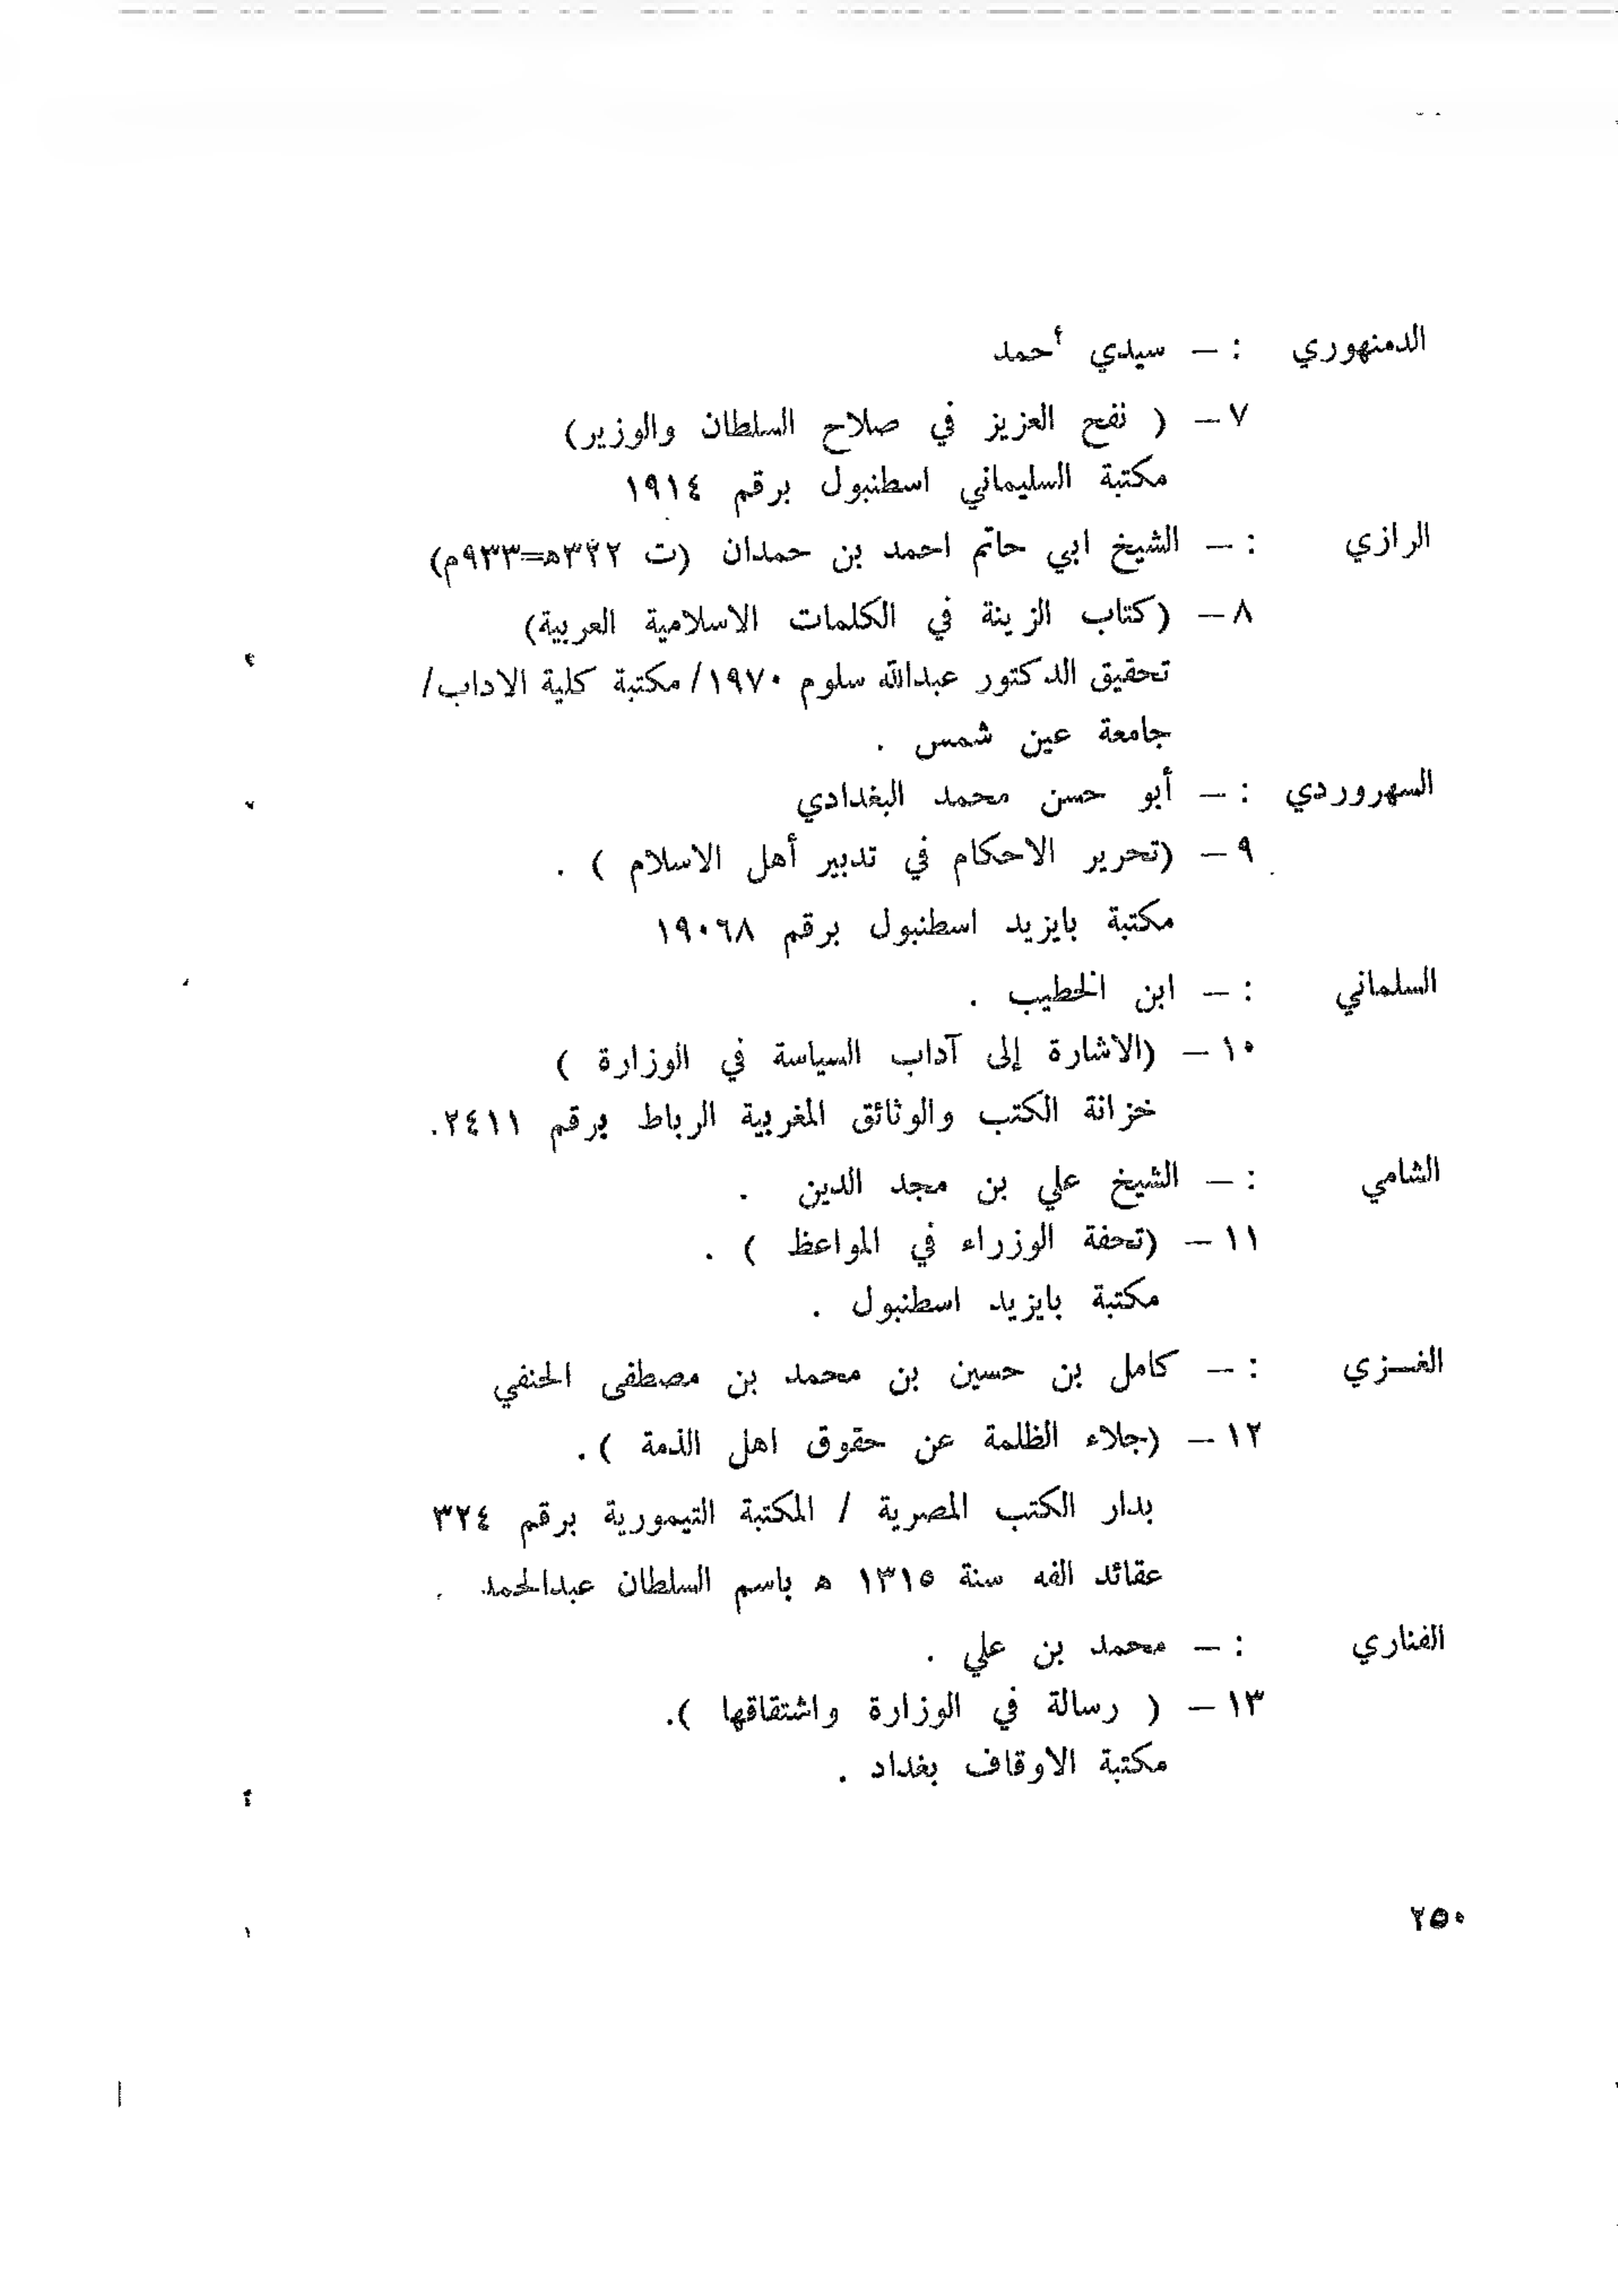 الدمنهوري : — سيدي أحمد
٧ — ( نفح العزيز في صلاح السلطان والوزير)
مكتبة السليماني اسطنبول برقم ١٩١٤
الرازي : — الشيخ ابي حاتم احمد بن حمدان (ت ٣٢٢هـ=٩٣٣م)
٨ — (كتاب الزينة في الكلمات الاسلامية العربية)
تحقيق الدكتور عبدالله سلوم ١٩٧٠/ مكتبة كلية الاداب/
جامعة عين شمس .
السهروردي : — أبو حسن محمد البغدادي
٩ — (تحرير الاحكام في تدبير أهل الاسلام ) .
مكتبة بايزيد اسطنبول برقم ١٩٠٦٨
السلماني : — ابن الخطيب .
١٠ — (الاشارة إلى آداب السياسة في الوزارة )
خزانة الكتب والوثائق المغربية الرباط برقم ٢٤١١.
الشامي : — الشيخ علي بن مجد الدين .
١١ — (تحفة الوزراء في المواعظ ) .
مكتبة بايزيد اسطنبول .
الغـزي : — كامل بن حسين بن محمد بن مصطفى الحنفي
١٢ — (جلاء الظلمة عن حقوق اهل الذمة ).
بدار الكتب المصرية / المكتبة التيمورية برقم ٣٢٤
عقائد الفه سنة ١٣١٥ ه باسم السلطان عبدالحمد .
الفناري : — محمد بن علي .
١٣ — ( رسالة في الوزارة واشتقاقها ).
مكتبة الاوقاف بغداد .
٢٥٠